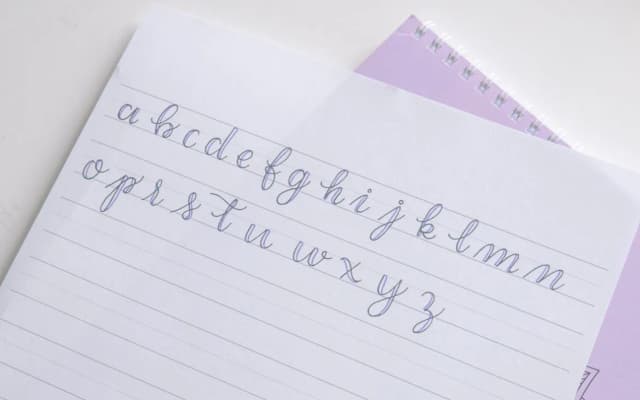 a b c d e f g h i j k l m n
o p r s t u w x y z